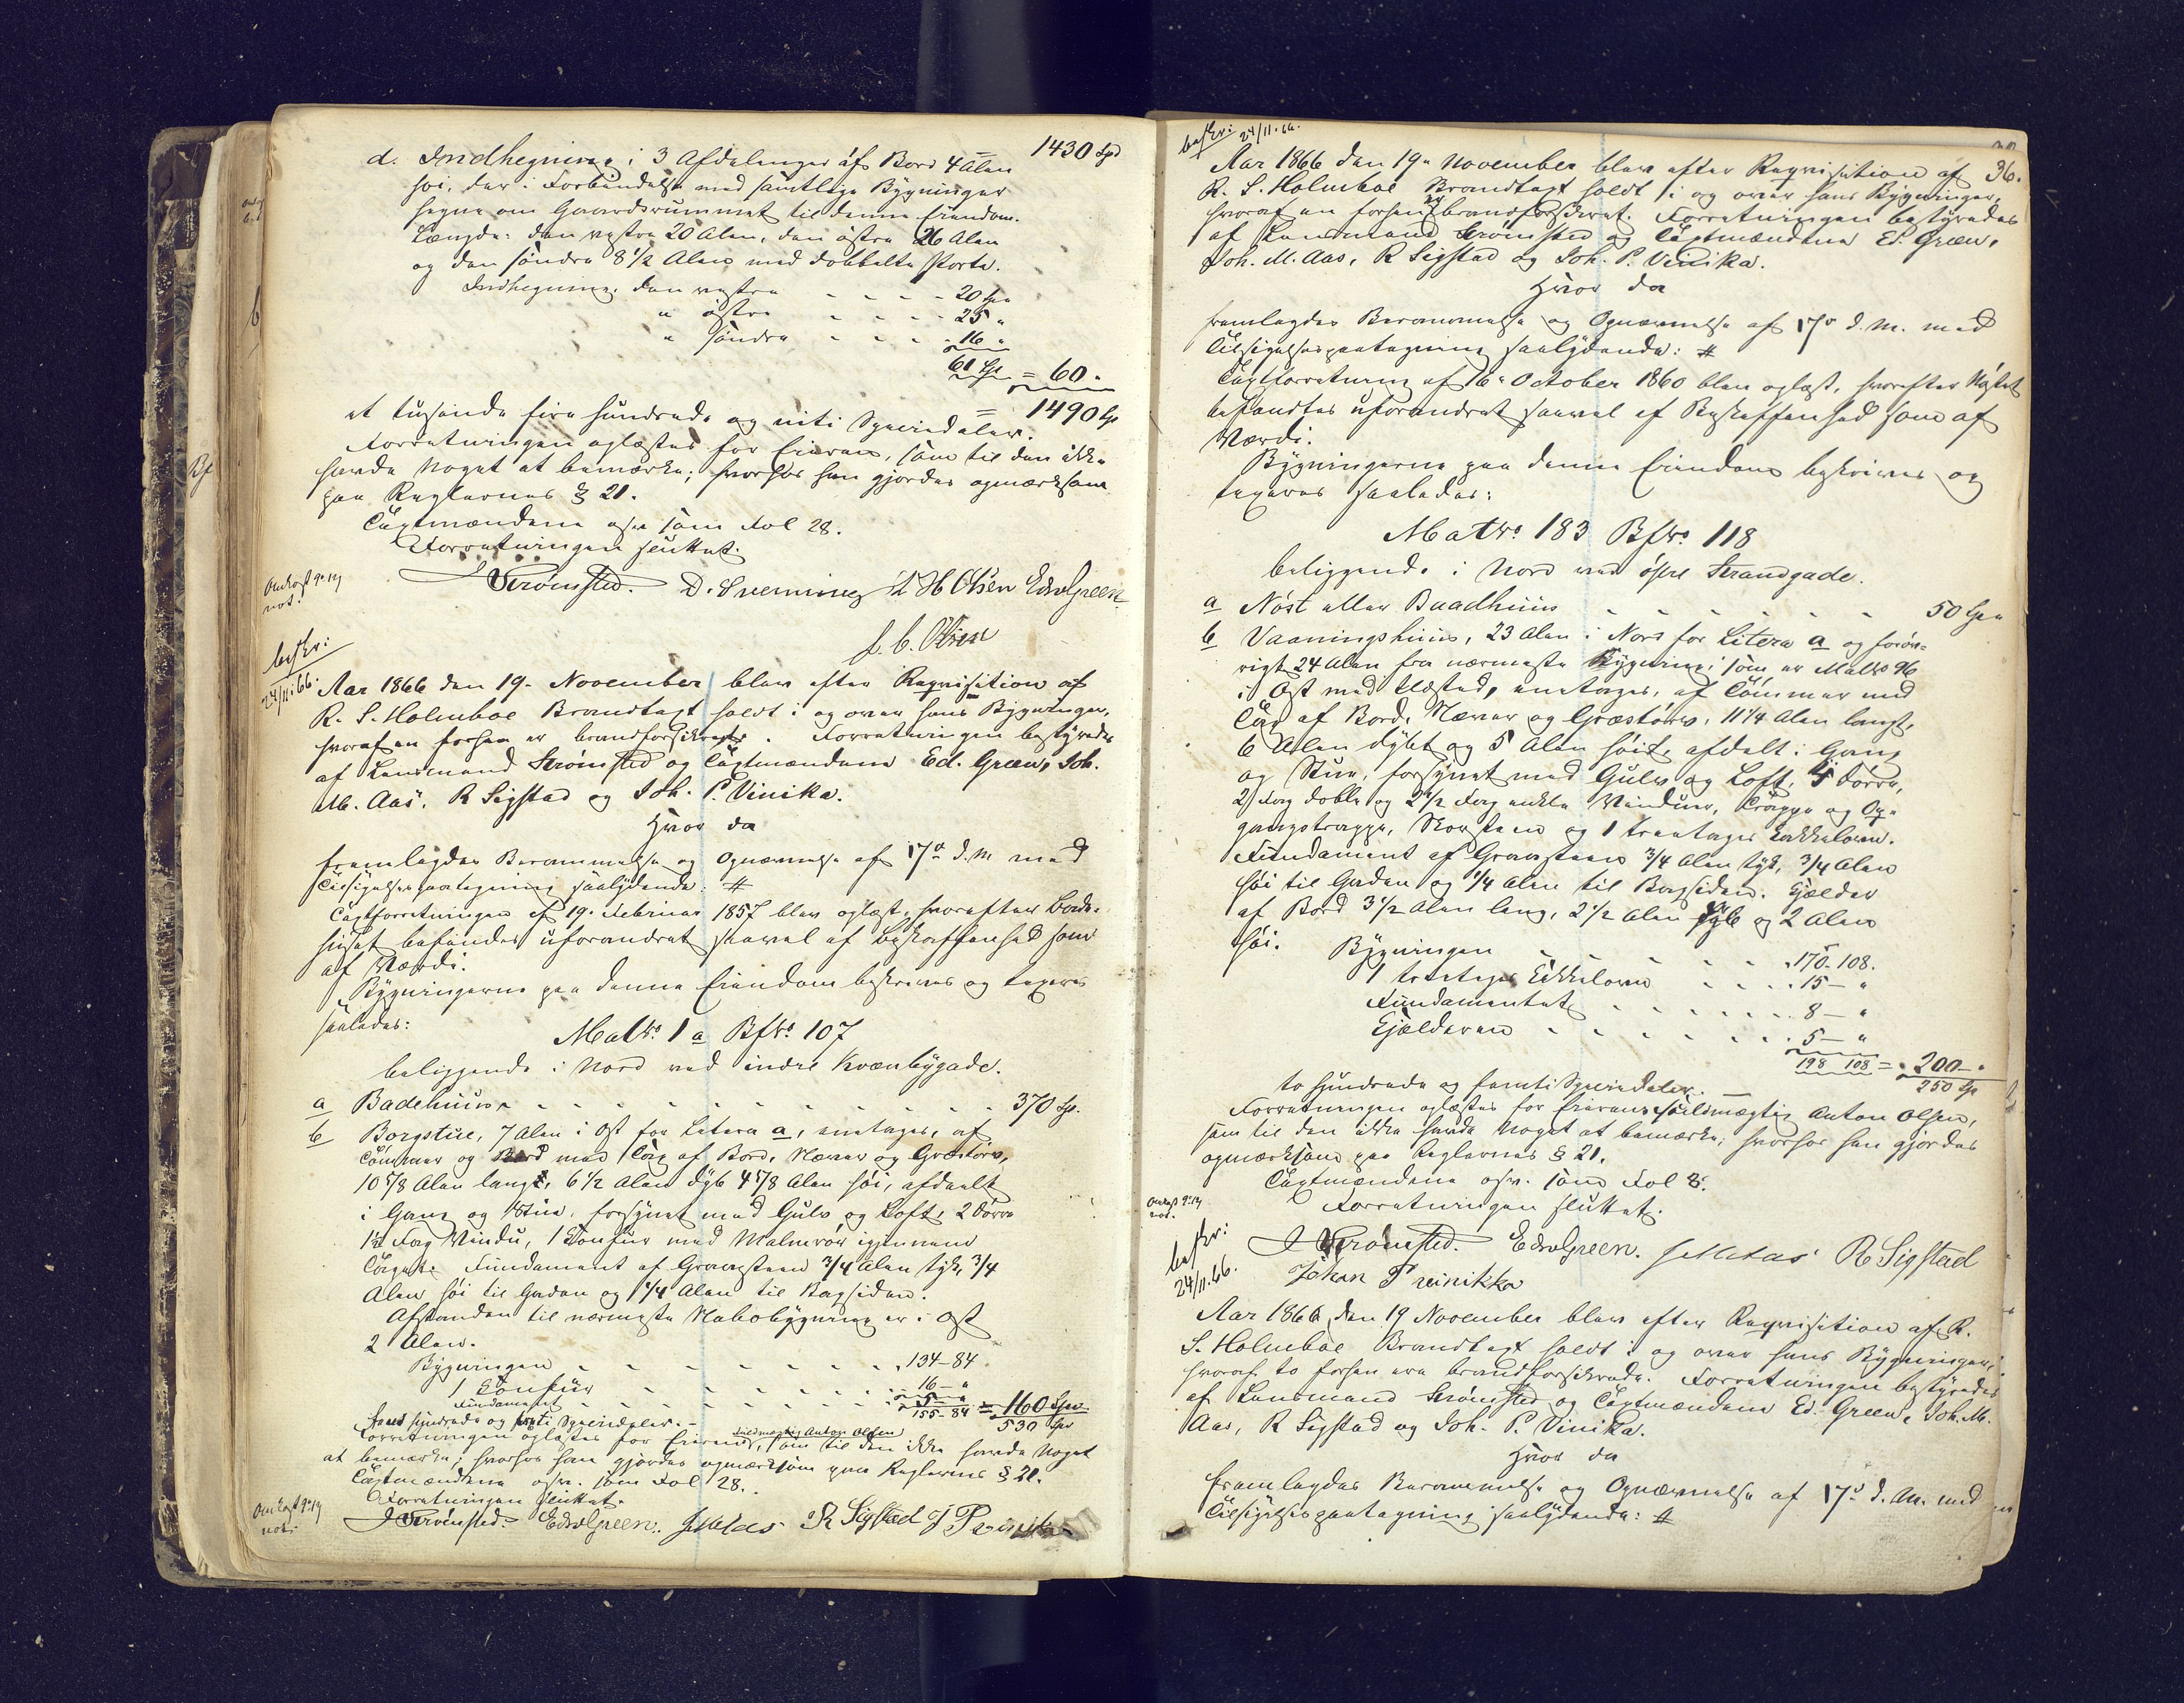 d. Indhegning i 3 Afdelinger af Bord 4 Alen = 1430 Spd
høi, der i Forbindelse med samtlige Bygninger
hegne om Gaardsrummet til denne Eiendom.
Længde: den vestre 20 Alen, den østre 26 Alen
og den søndre 8 1/2 Alen med dobbelte Porte.
Indhegning, den vestre - - - - 20 Spd
" østre - - - - 25 "
" søndre - - - - 16 "
61 Spd = 60 "
= 1490 Spd
et tusinde fire hundrede og niti Speciedaler.
Forretningen oplæstes for Eieren, som til den ikke
havde Noget at bemærke; hvorhos han gjordes opmærksom
paa Reglernes § 21.
Taxtmændene osv. som Fol 28.
Forretningen sluttet.
J Strømsted. D. Sverning L H Olsen EdvGreen
J. C. Olsen
not.
beskr:
24/11 66.
Aar 1866 den 19. November blev efter Reqvisition af
R. S. Holmboe Brandtaxt holdt i og over hans Bygninger,
hvoraf en forhen er brandforsikret. Forretningen bestyredes
af Lensmand Strømsted og Taxtmændene Ed. Green, Joh.
M. Aas, R Sigstad og Joh. P. Vinika.
Hvor da
fremlagdes Berammelse og Opnævnelse af 17de d. M. med
Tilsigelsespaategning saalydende: #
Taxtforretningen af 19. Februar 1857 blev oplæst, hvorefter Bade-
huset befandtes uforandret saavel af Beskaffenhed som
af Værdi.
Bygningerne paa denne Eiendom beskrives og taxeres
saaledes:
MatNo 1 a BfNo 107
beliggende i Nord ved indre Kvænbygade.
a Badehuus - - - - - - 370 Sp.
b Borgstue, 7 Alen i Øst for Litera a, eenetages, af
Tømmer og Bord med Tag af Bord, Næver og Græstørv,
10 5/8 Alen langt, 6 1/2 Alen dyb 4 5/8 Alen høi, afdeelt
i Gang og Stue, forsynet med Gulv og Loft, 2 Dørre
1 1/2 Fag Vindu, 1 Komfur med Malmrør igjennem
Taget. Fundament af Graasteen 3/4 Alen tyk, 3/4
Alen høi til Gaden og 1/4 Alen til Bagsiden.
Afstanden til nærmeste Nabobygning er i Øst
2 Alen.
Bygningen - - - - - - 134-84.
1 Komfur - - - - - - 16 - "
Fundament - - - - - - 5 - "
155-84 = 160 Spd.
530 Spd
fem hundrede og treti Speciedaler. -
Forretningen oplæstes for Eierens fuldmægtig Anton Olsen, som til den ikke havde Noget
at bemærke; hvorhos han gjordes opmærksom paa Reglernes § 21.
Taxtmændene osv. som Fol 28.
Forretningen sluttet.
J Strømsted. EdvGreen. JMAas R Sigstad J P
not.
beskr: 24/11.66.
36.
Aar 1866 den 19. November blev efter Reqvisition af
R. S. Holmboe Brandtaxt holdt i og over hans Bygninger,
hvoraf en forhen er brandforsikret. Forretningen bestyredes
af Lensmand Strømsted og Taxtmændene Ed. Green,
Joh. M. Aas, R Sigstad og Joh. P. Vinika.
Hvor da
fremlagdes Berammelse og Opnævnelse af 17de d. M. med
Tilsigelsespaategning saalydende: #
Taxtforretning af 16. October 1860 blev oplæst, hvorefter Nøstet
befandtes uforandret saavel af Beskaffenhed som af
Værdi.
Bygningerne paa denne Eiendom beskrives og
taxeres saaledes:
MatNo 183 BfNo 118
beliggende i Nord ved øvre Strandgade.
a Nøst eller Baadhuus - - - - - 50 Spd
b Vaaningshuus, 23 Alen i Nord for Litera a og forøv-
rigt 24 Alen fra nærmeste Bygning, som er MatNo 96
i Øst med Udsted, eenetages, af Tømmer med
Tag af Bord, Næver og Græstørv, 11 1/4 Alen langt,
6 Alen dybt og 5 Alen høit, afdelt i Gang
og Stue, forsynet med Gulv og Loft, 5 Dørre,
2 Fag doble og 2 1/2 Fag enkle Vinduer, Trappe og Op-
gangstrappe, Skorsteen og 1 treetages Kakkelovn.
Fundament af Graasteen 3/4 Alen tyk, 3/4 Alen
høi til Gaden og 1/4 Alen til Bagsiden. Kjælder
af Bord 3 1/2 Alen lang, 2 1/2 Alen dyb og 2 Alen
høi.
Bygningen - - - - - 170-108.
1 treetages Kakkelovn - - - - 15 - "
Fundamentet - - - - - - 8 - "
Kjælderen - - - - - - 5 - "
198 108 = 200 - "
250 Sp
to hundrede og femti Speciedaler.
Forretningen oplæstes for Eierens fuldmægtig Anton Olsen,
som til den ikke havde Noget at bemærke; hvorhos han gjordes
opmærksom paa Reglernes § 21.
Taxtmændene osv. som Fol 8.
Forretningen sluttet.
J Strømsted. EdvGreen. JMAas R Sigstad
Johan P Vinikka
not.
beskr:
24/11.66.
Aar 1866, den 19 November blev efter Reqvisition af R.
S. Holmboe Brandtaxt holdt i og over hans Bygninger,
hvoraf to forhen ere brandforsikrede. Forretningen bestyredes
af Lensmand Strømsted og Taxtmændene Ed. Green, Joh. M.
Aas, R Sigstad og Joh. P. Vinika.
Hvor da
fremlagdes Berammelse og Opnævnelse af 17de d. M. med
Tilsigelsespaategning saalydende: #